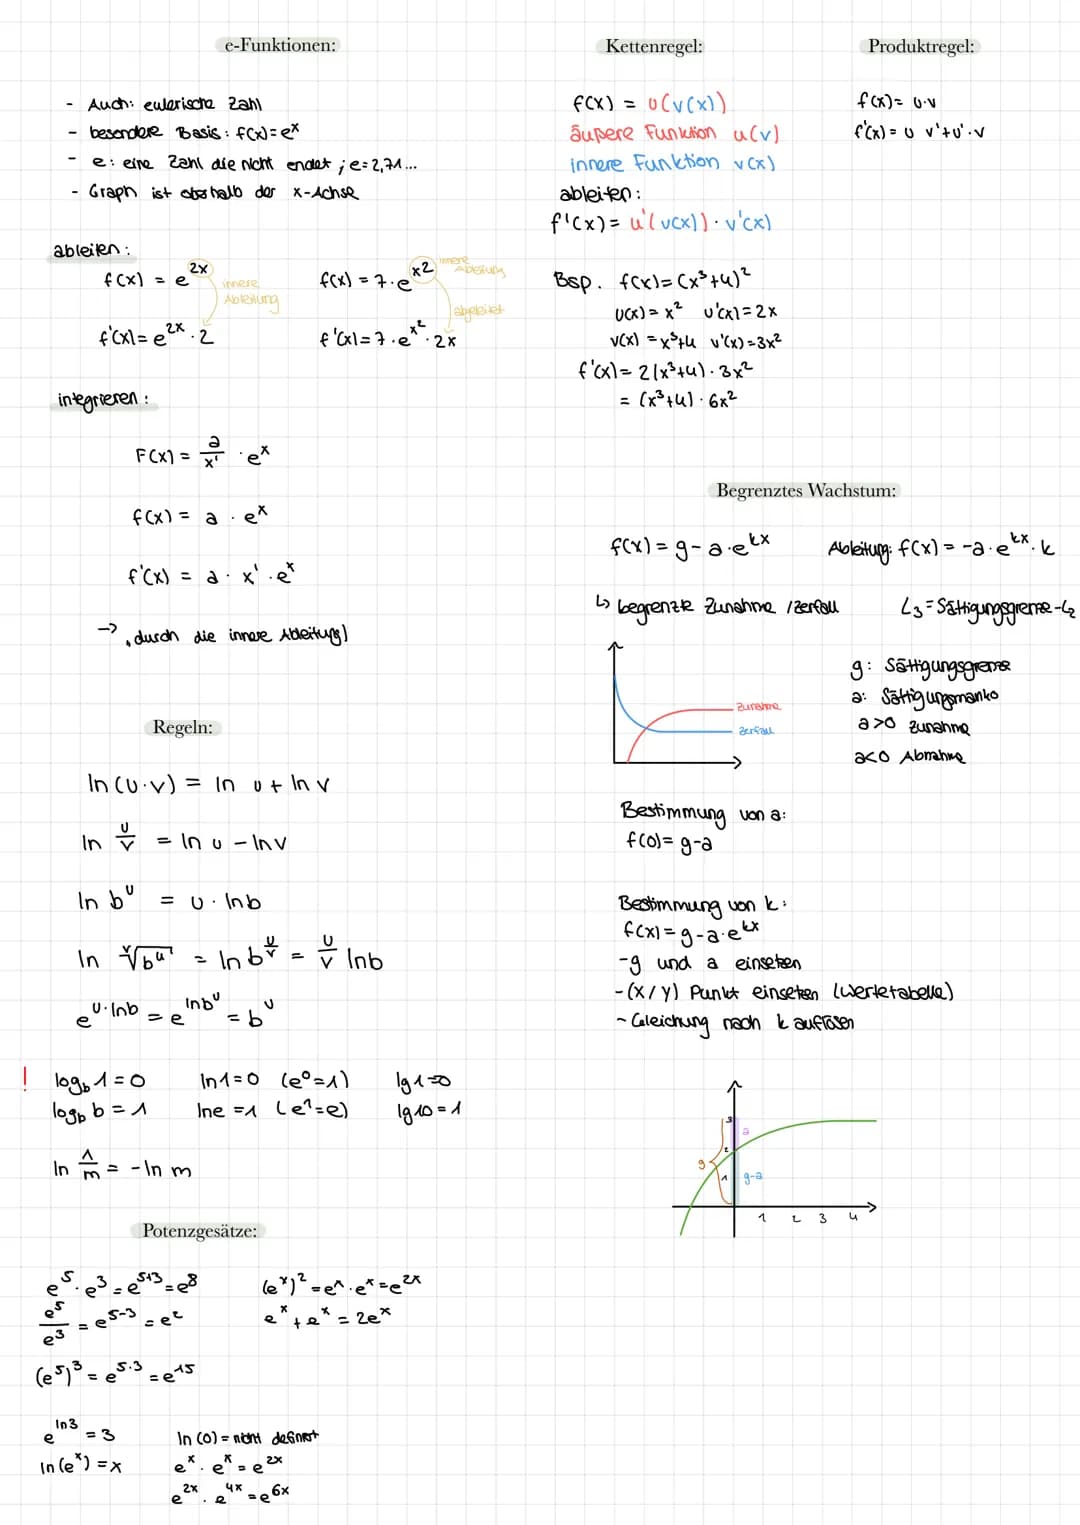 e-Funktionen:
- Auch: eulerische Zahl
- besondere Basis: f(x)=e^x
- e: eine Zahl die nicht endet ; e=2,71...
- Graph ist oberhalb der x-Achse
ableiten:
f(x) = e^2x
innere
Ableitung
f'(x)= e^2x · 2
f(x) = 7·e^x2
innere
Ableitung
abgeleitet
f'(x)= 7·e^x² · 2x
integrieren:
F(x) = a/x' · e^x
f(x) = a · e^x
f'(x) = a · x' · e^x
-> , durch die innere Ableitung)
Regeln:
ln(u·v) = ln u + ln v
ln u/v = ln u - ln v
ln b^u = u · ln b
ln ᵛ√b^u = ln b^u/v = u/v ln b
e^u·lnb = e^lnb^u = b^u
! log_b 1=0 ln1=0 (e^0=1) lg1=0
log_b b = 1 lne =1 (e^1=e) lg10=1
ln 1/m = -ln m
Potenzgesätze:
e^5·e^3 = e^5+3 = e^8 (e^x)² = e^x·e^x = e^2x
e^5/e^3 = e^5-3 = e^2 e^x + e^x = 2e^x
(e^5)^3 = e^5·3 = e^15
e^ln3 = 3 ln(0) = nicht definiert
ln(e^x) = x e^x · e^x = e^2x
e^2x · e^4x = e^6x
Kettenregel:
f(x) = u(v(x))
äußere Funktion u(v)
innere Funktion v(x)
ableiten:
f'(x)= u'(v(x)) · v'(x)
Bsp. f(x)=(x³+4)²
u(x)=x² u'(x)=2x
v(x)=x³+4 v'(x)=3x²
f'(x)= 2(x³+4) · 3x²
= (x³+4) · 6x²
Produktregel:
f(x)= u·v
f'(x)= u v'+u'·v
Begrenztes Wachstum:
f(x) = g-a·e^kx Ableitung: f(x) = -a·e^kx·k
↳ begrenzte Zunahme /Zerfall L3=Sättigungsgrenze-L2
Zunahme
Zerfall
g: Sättigungsgrenze
a: Sättigungsmanko
a>0 Zunahme
a<0 Abnahme
Bestimmung von a:
f(0)= g-a
Bestimmung von k:
f(x)= g-a·e^kx
-g und a einsetzen
-(x/y) Punkt einsetzen (Wertetabelle)
-Gleichung nach k auflösen
3
a
2
g
1 g-a
1 2 3 4